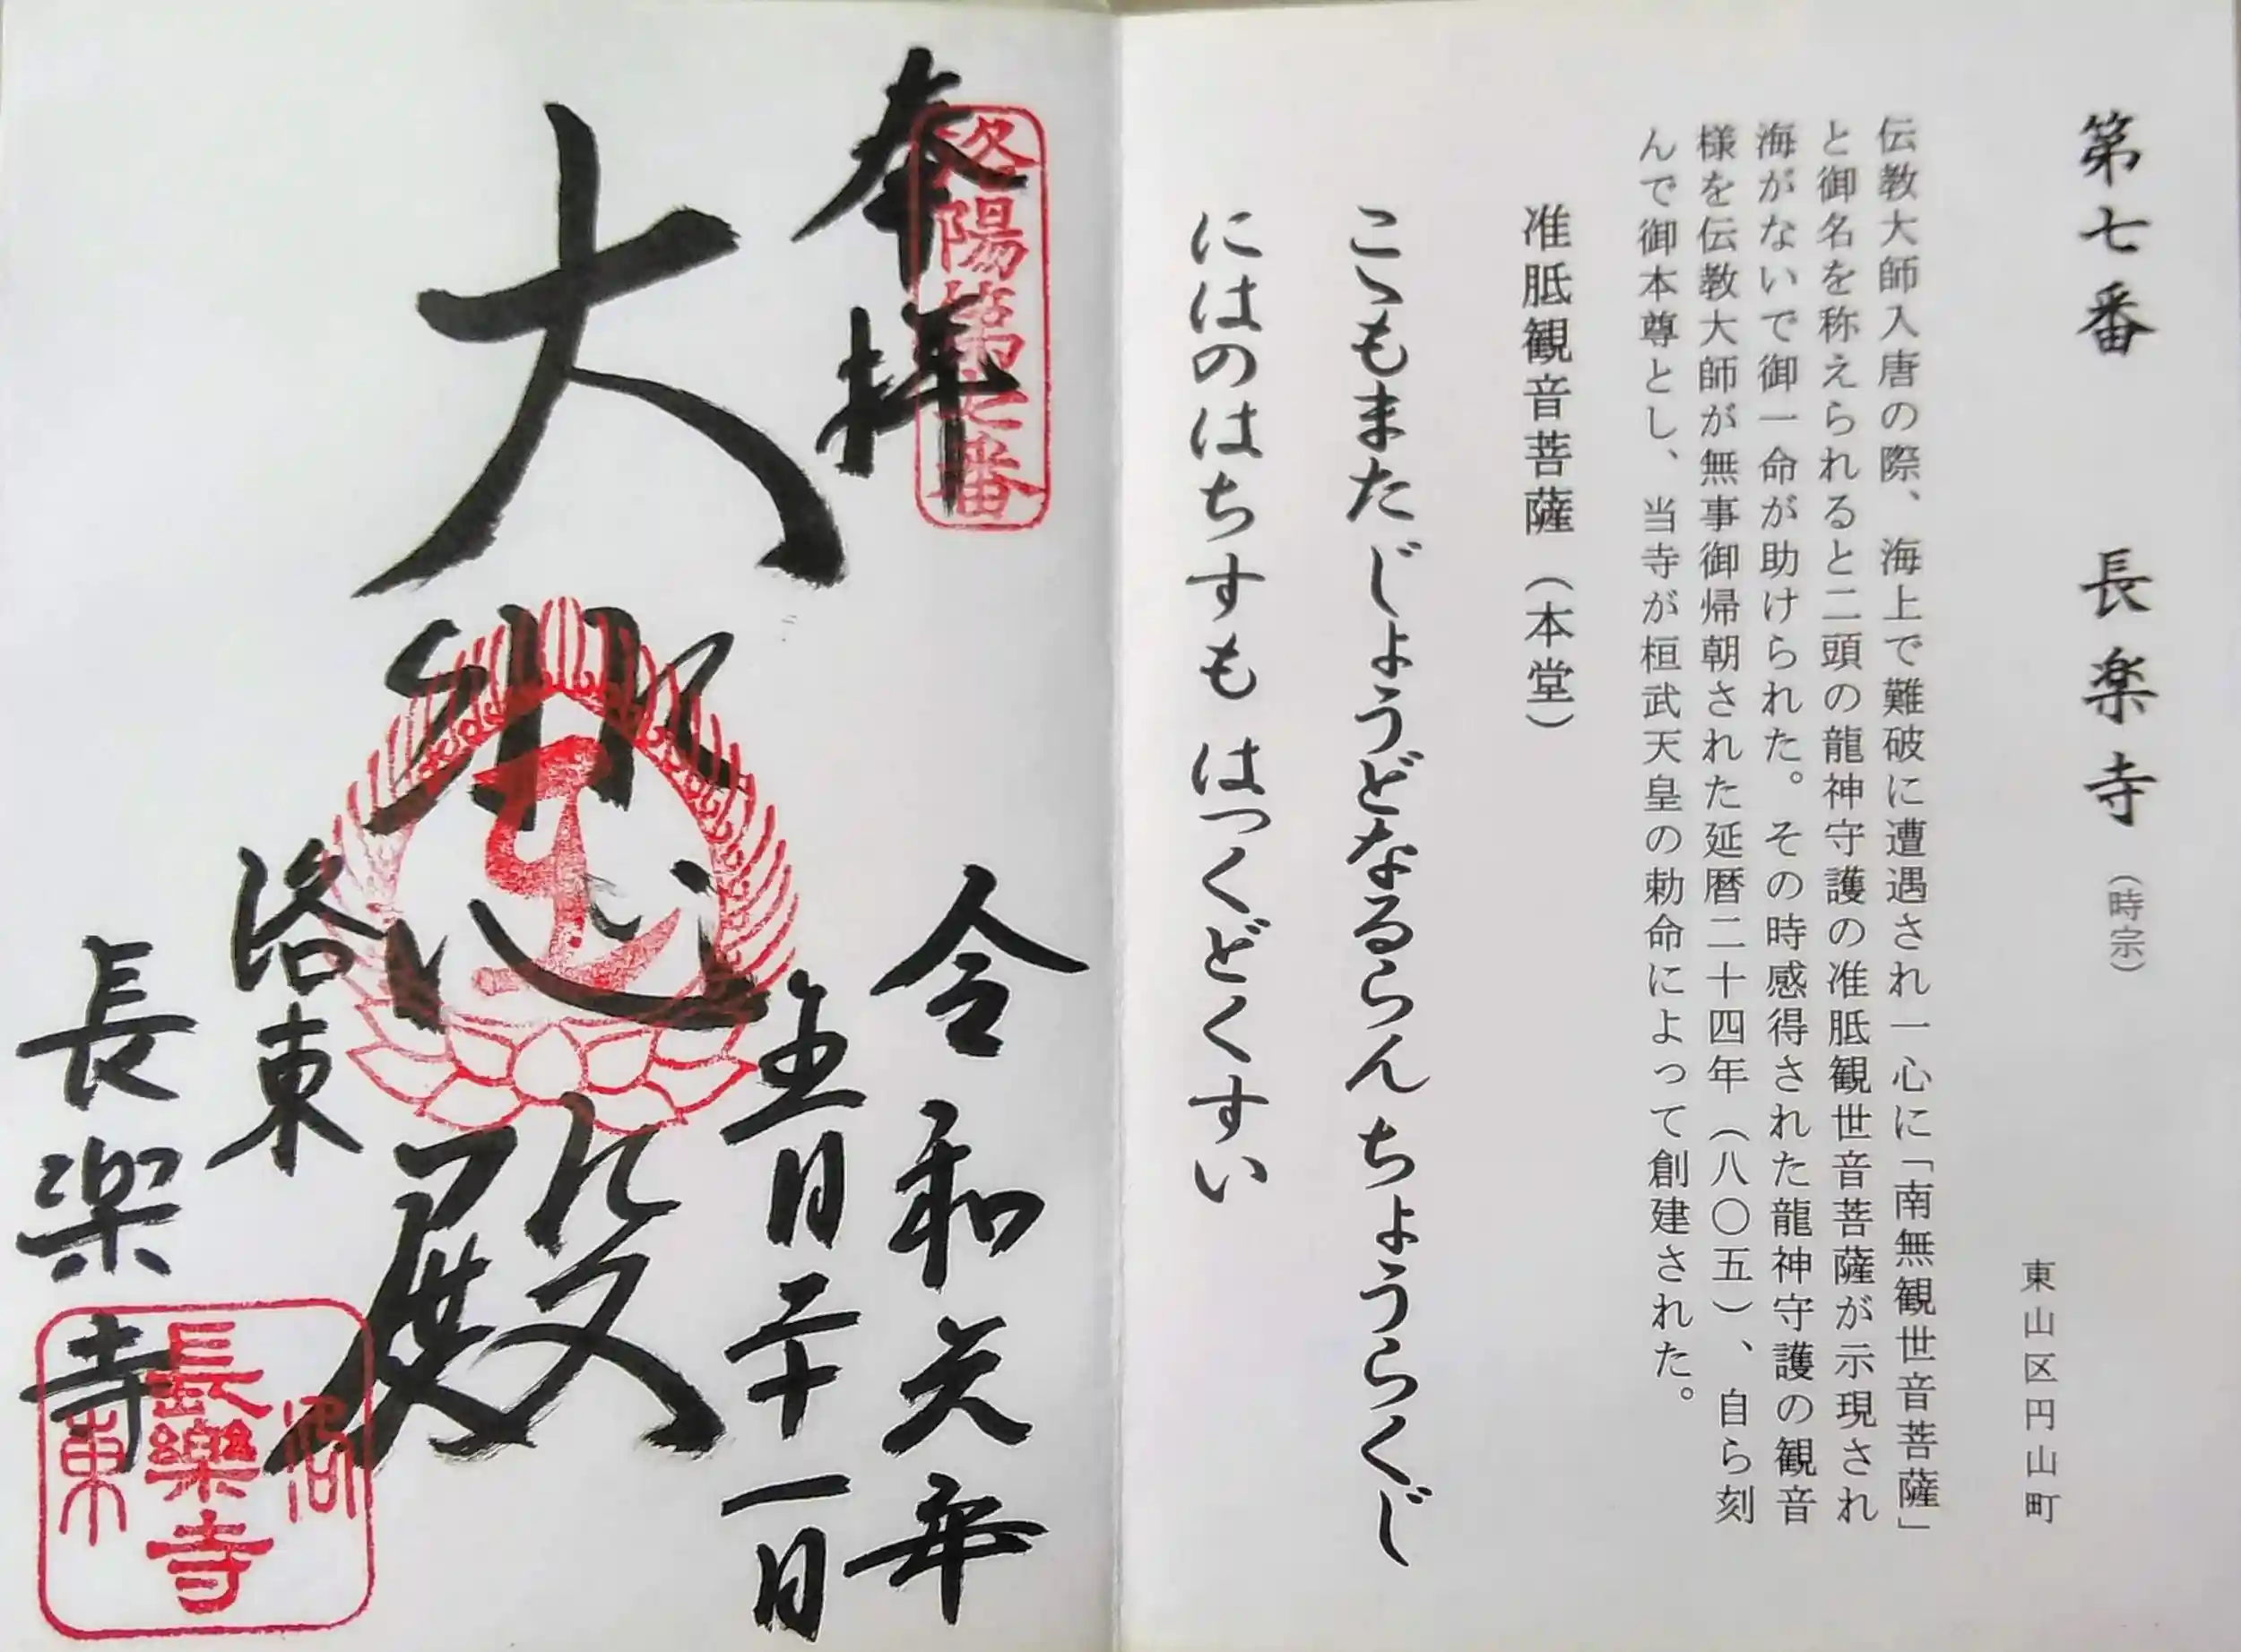 第七番 長楽寺（時宗）
東山区円山町
伝教大師入唐の際、海上で難破に遭遇され一心に「南無観世音菩薩」
と御名を称えられると二頭の龍神守護の准胝観世音菩薩が示現され
海がないで御一命が助けられた。その時感得された龍神守護の観音
様を伝教大師が無事御帰朝された延暦二十四年（八〇五）、自ら刻
んで御本尊とし、当寺が桓武天皇の勅命によって創建された。
准胝観音菩薩（本堂）
こゝもまたじょうどなるらん ちょうらくじ
にはのはちすも はっくどくすい
洛陽第七番
奉拝
令和元年
五月二十一日
大悲殿
洛東
長楽寺
洛
長樂寺
東